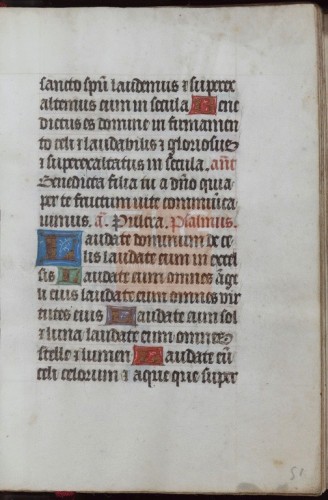 sancto spū laudemus ⁊ superex
altemus eum in secula Bene
dictus es domine in firmamen
to celi ⁊ laudabilis ⁊ gloriosus
⁊ superexaltatus in secula. añt
Benedicta filia tu a dño quia
per te fructum vite communica
uimus. a. Pulcra. Psalmus.
Laudate dominum de ce
lis laudate eum in excel
sis Laudate eum omnes āge
li eius laudate eum omnes vir
tutes eius Laudate eum sol
⁊ luna laudate eum omnes
stelle ⁊ lumen Laudate eū
celi celorum ⁊ aque que super
51